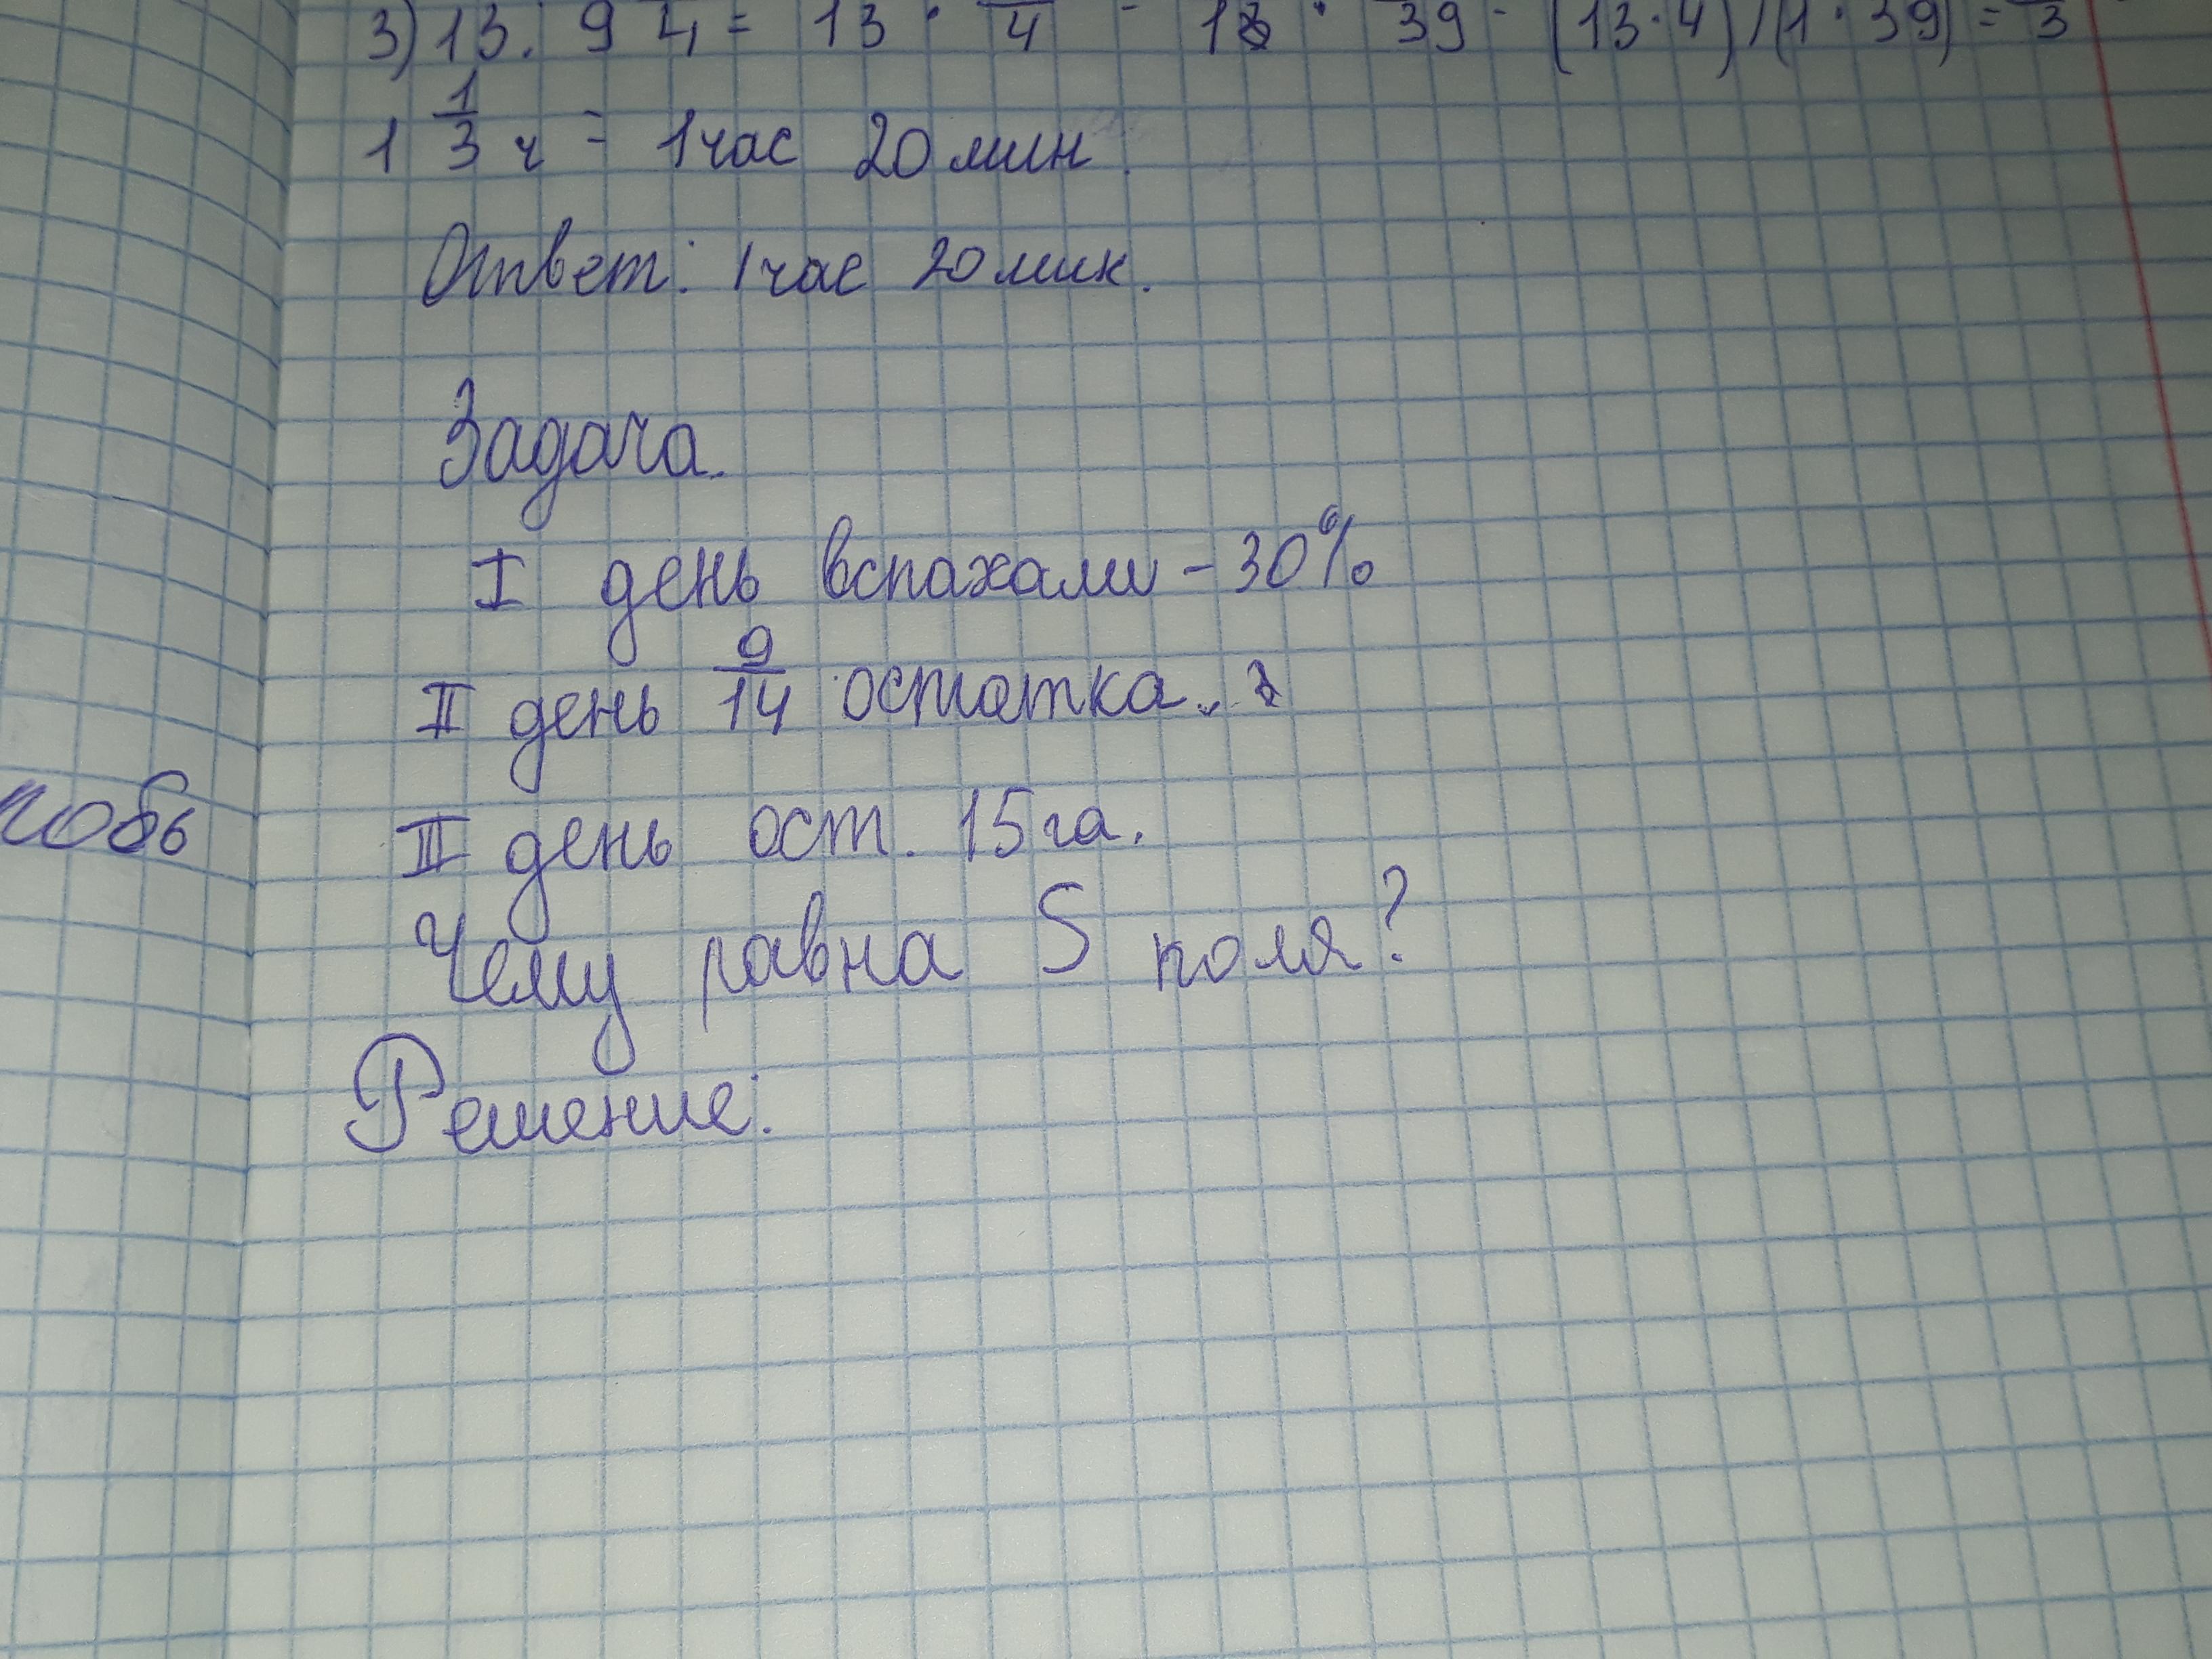 3) 13 : 9 4 = 13 · 4 - 13 · 39 - (13·4)/(1·39) = 3
1 1/3 ч = 1 час 20 мин.
Ответ: 1 час 20 мин.
Задача.
I день вспахали - 30%
II день 9/14 остатка.
III день ост. 15 га.
Чему равна S поля?
Решение: